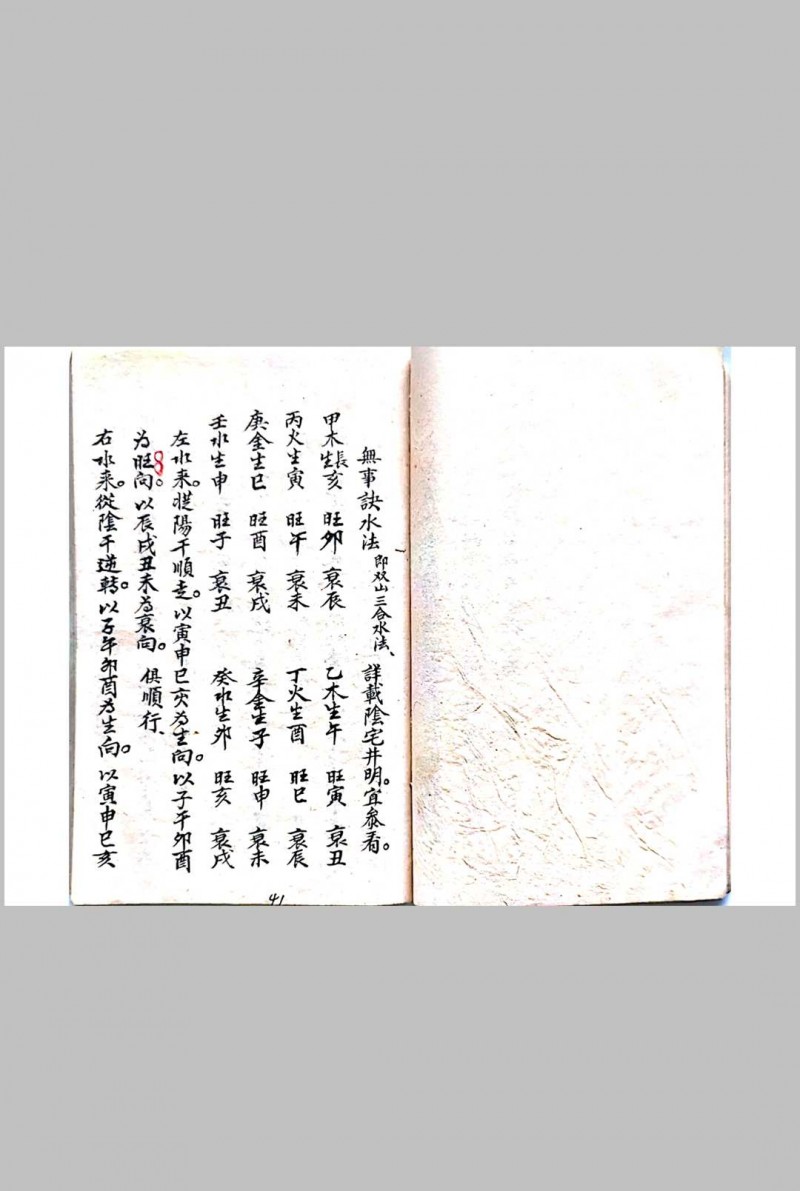 無事訣水法 即双山三合水法、 詳載陰宅井明。宜參看。
甲木長生亥 旺卯 衰辰 乙木生午 旺寅 衰丑
丙火生寅 旺午 衰未 丁火生酉 旺巳 衰辰
庚金生巳 旺酉 衰戌 辛金生子 旺申 衰未
壬水生申 旺子 衰丑 癸水生卯 旺亥 衰戌
左水来。從陽干順走。以寅申巳亥为生向。以子午卯酉
为旺向。以辰戌丑未为衰向。俱順行、
右水来。從陰干逆轉。以子午卯酉为生向。以寅申巳亥
41